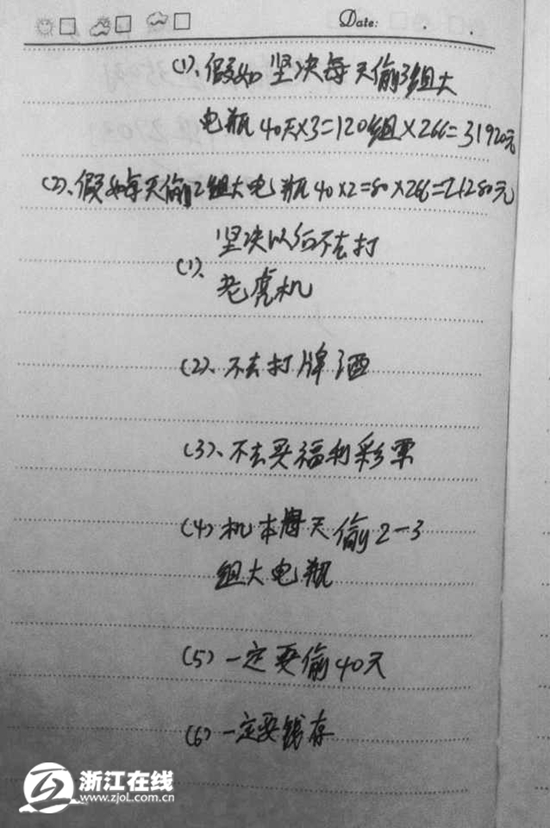 Date:
(1)、假如 坚决每天偷3组大
电瓶 40天×3=120组×266=31920元
(2)、假如每天偷2组大电瓶 40×2=80×266=21280元
坚决以后不去打
(1)、
老虎机
(2)、不去打牌酒
(3)、不去买福利彩票
(4) 机本每天偷2-3
组大电瓶
(5) 一定要偷40天
(6) 一定要钱存
浙江在线
www.zjol.com.cn